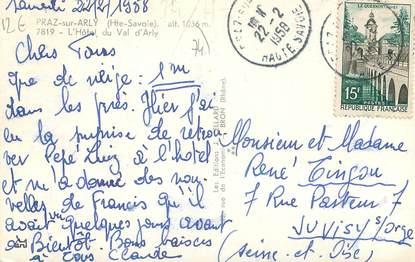 Samedi 22/2/1958
12€
PRAZ-sur-ARLY (Hte-Savoie). alt. 1036 m.
7819 - L'Hôtel du Val d'Arly
74
Chers Tous
Que de neige : 1m
dans les prés. Hier j'ai
eu la surprise de retrou-
ver Pépé à l'hôtel
et m'a donné des nou-
velles de Francis qu'il
avait vu quelques jours avant
Bientôt. Bons baisers
à Tous Claude
22-2
1958
HAUTE SAVOIE
LE QUESNOY
15F
POSTES
REPUBLIQUE FRANÇAISE
Monsieur et Madame
René Tingou
7 Rue Pasteur 7
JUVISY s/Orge
(Seine-et-Oise)